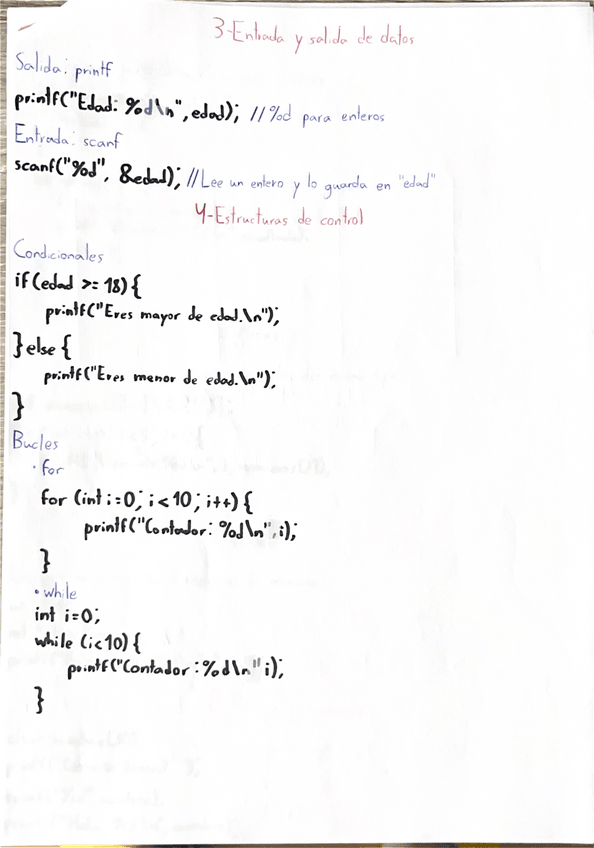 3-Entrada y salida de datos
Salida: printf
printf("Edad: %d\n", edad); //%d para enteros
Entrada: scanf
scanf("%d", &edad); //Lee un entero y lo guarda en "edad"
4-Estructuras de control
Condicionales
if (edad >= 18) {
printf("Eres mayor de edad.\n");
} else {
printf("Eres menor de edad.\n");
}
Bucles
• for
for (int i=0; i<10; i++) {
printf("Contador: %d\n", i);
}
• while
int i=0;
while (i<10) {
printf("Contador: %d\n" i);
}